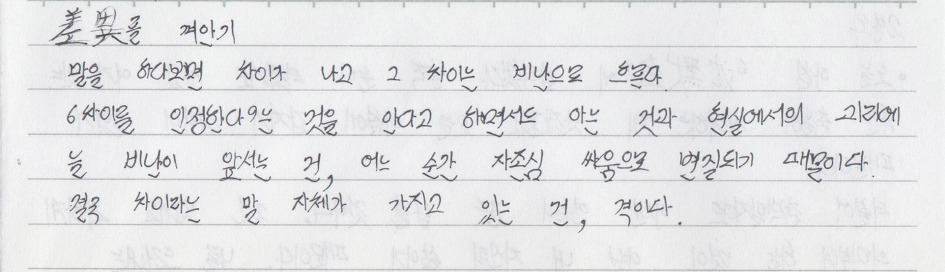 差異를 껴안기
말을 하다보면 차이가 나고 그 차이는 비난으로 흐른다
6차이를 인정한다9는 것을 안다고 하면서도 아는 것과 현실에서의 괴리에
늘 비난이 앞서는 건, 어느 순간 자존심 싸움으로 변질되기 때문이다.
결국 차이라는 말 자체가 가지고 있는 건, 격이다.